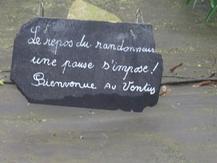 Le repos du randonneur
une pause s'impose !
Bienvenue Au Ventus